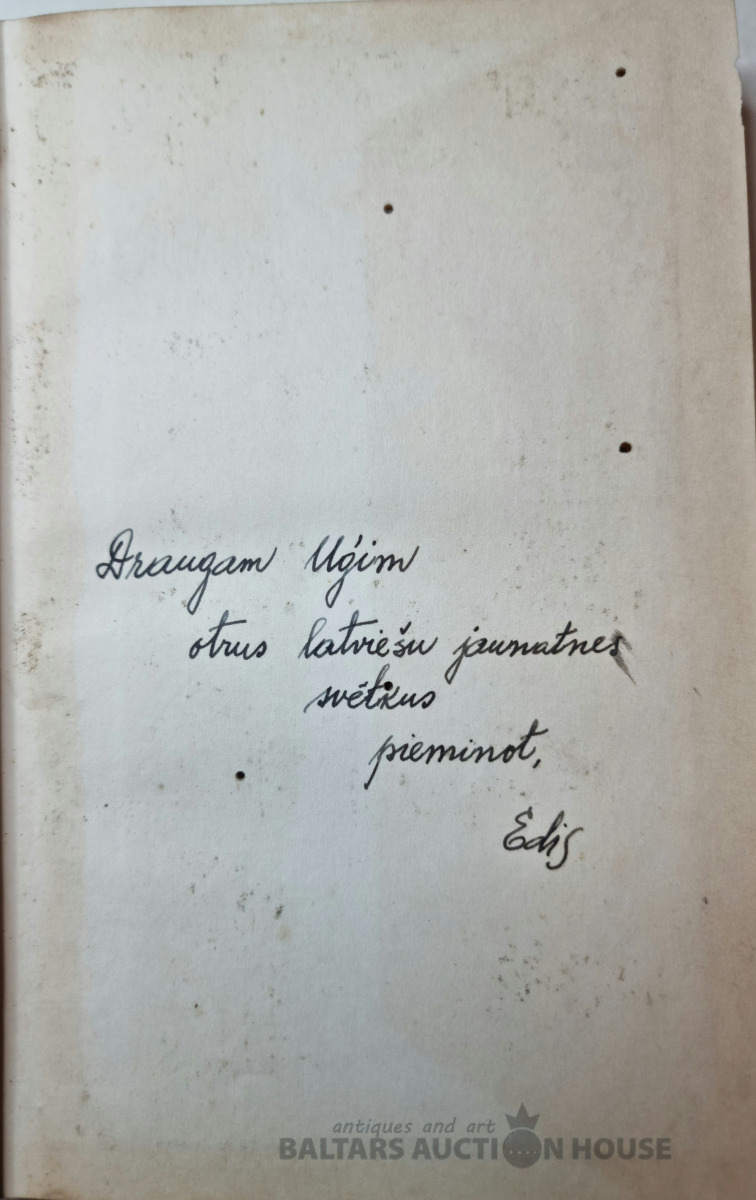 Draugam Uģim
otrus latviešu jaunatnes
svētkus
pieminot,
Edis
antiques and art
BALTARS AUCTION HOUSE